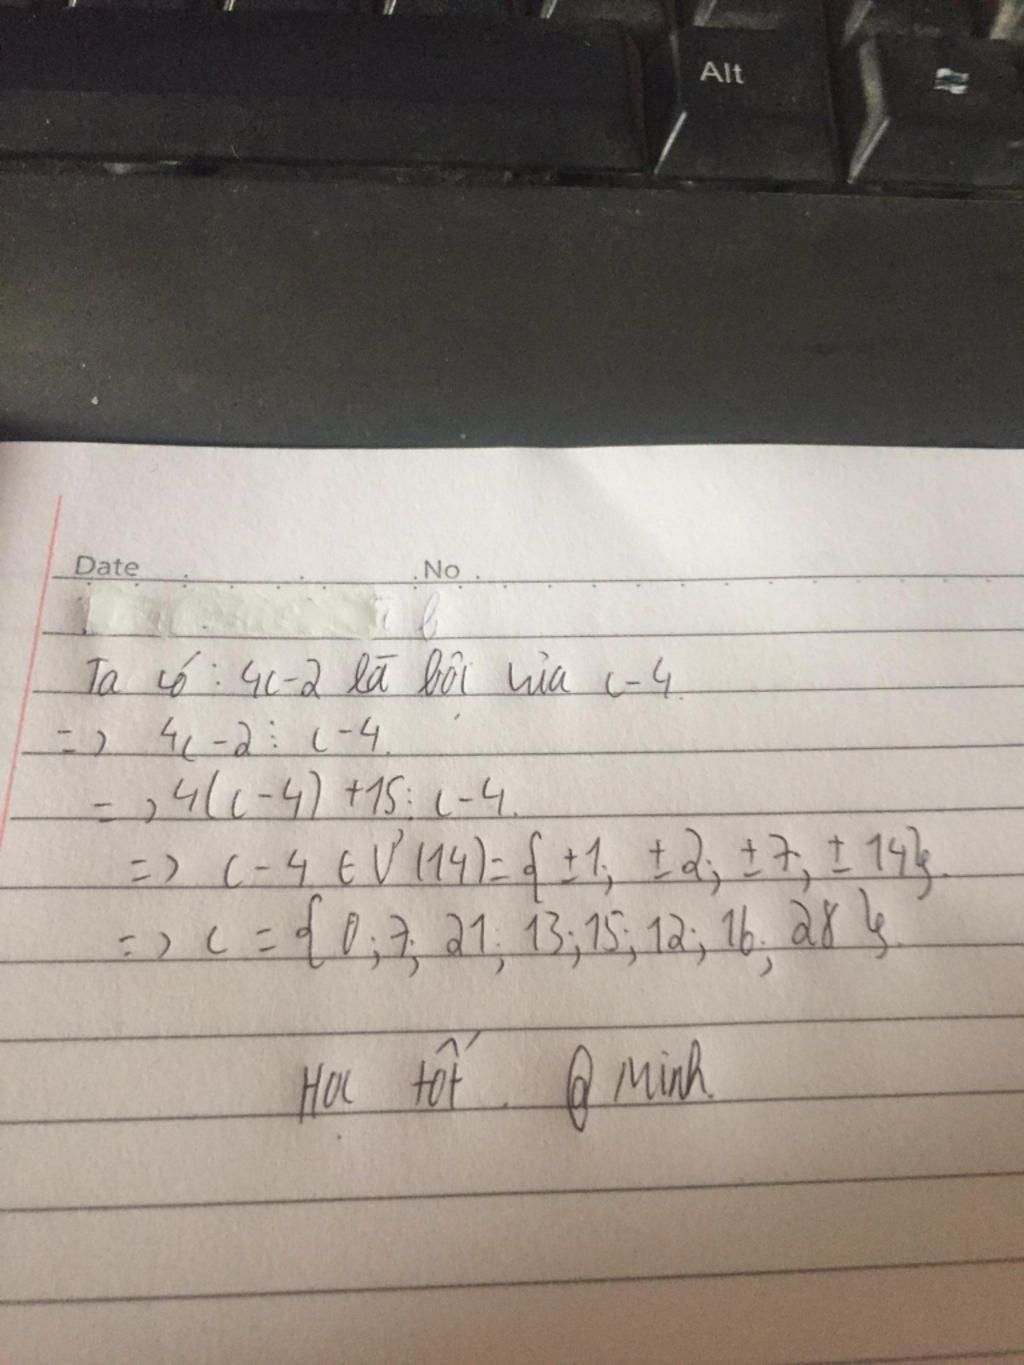 Alt
Date No
Ta có : 4c-2 là bội của c-4
=> 4c-2 ⋮ c-4.
=> 4(c-4) +15 ⋮ c-4.
=> c-4 ∈ Ư(14) = { ±1; ±2; ±7; ±14}.
=> c = { 0; 7; 21; 13; 15; 12; 16; 28 }.
Học tốt. @ Minh.